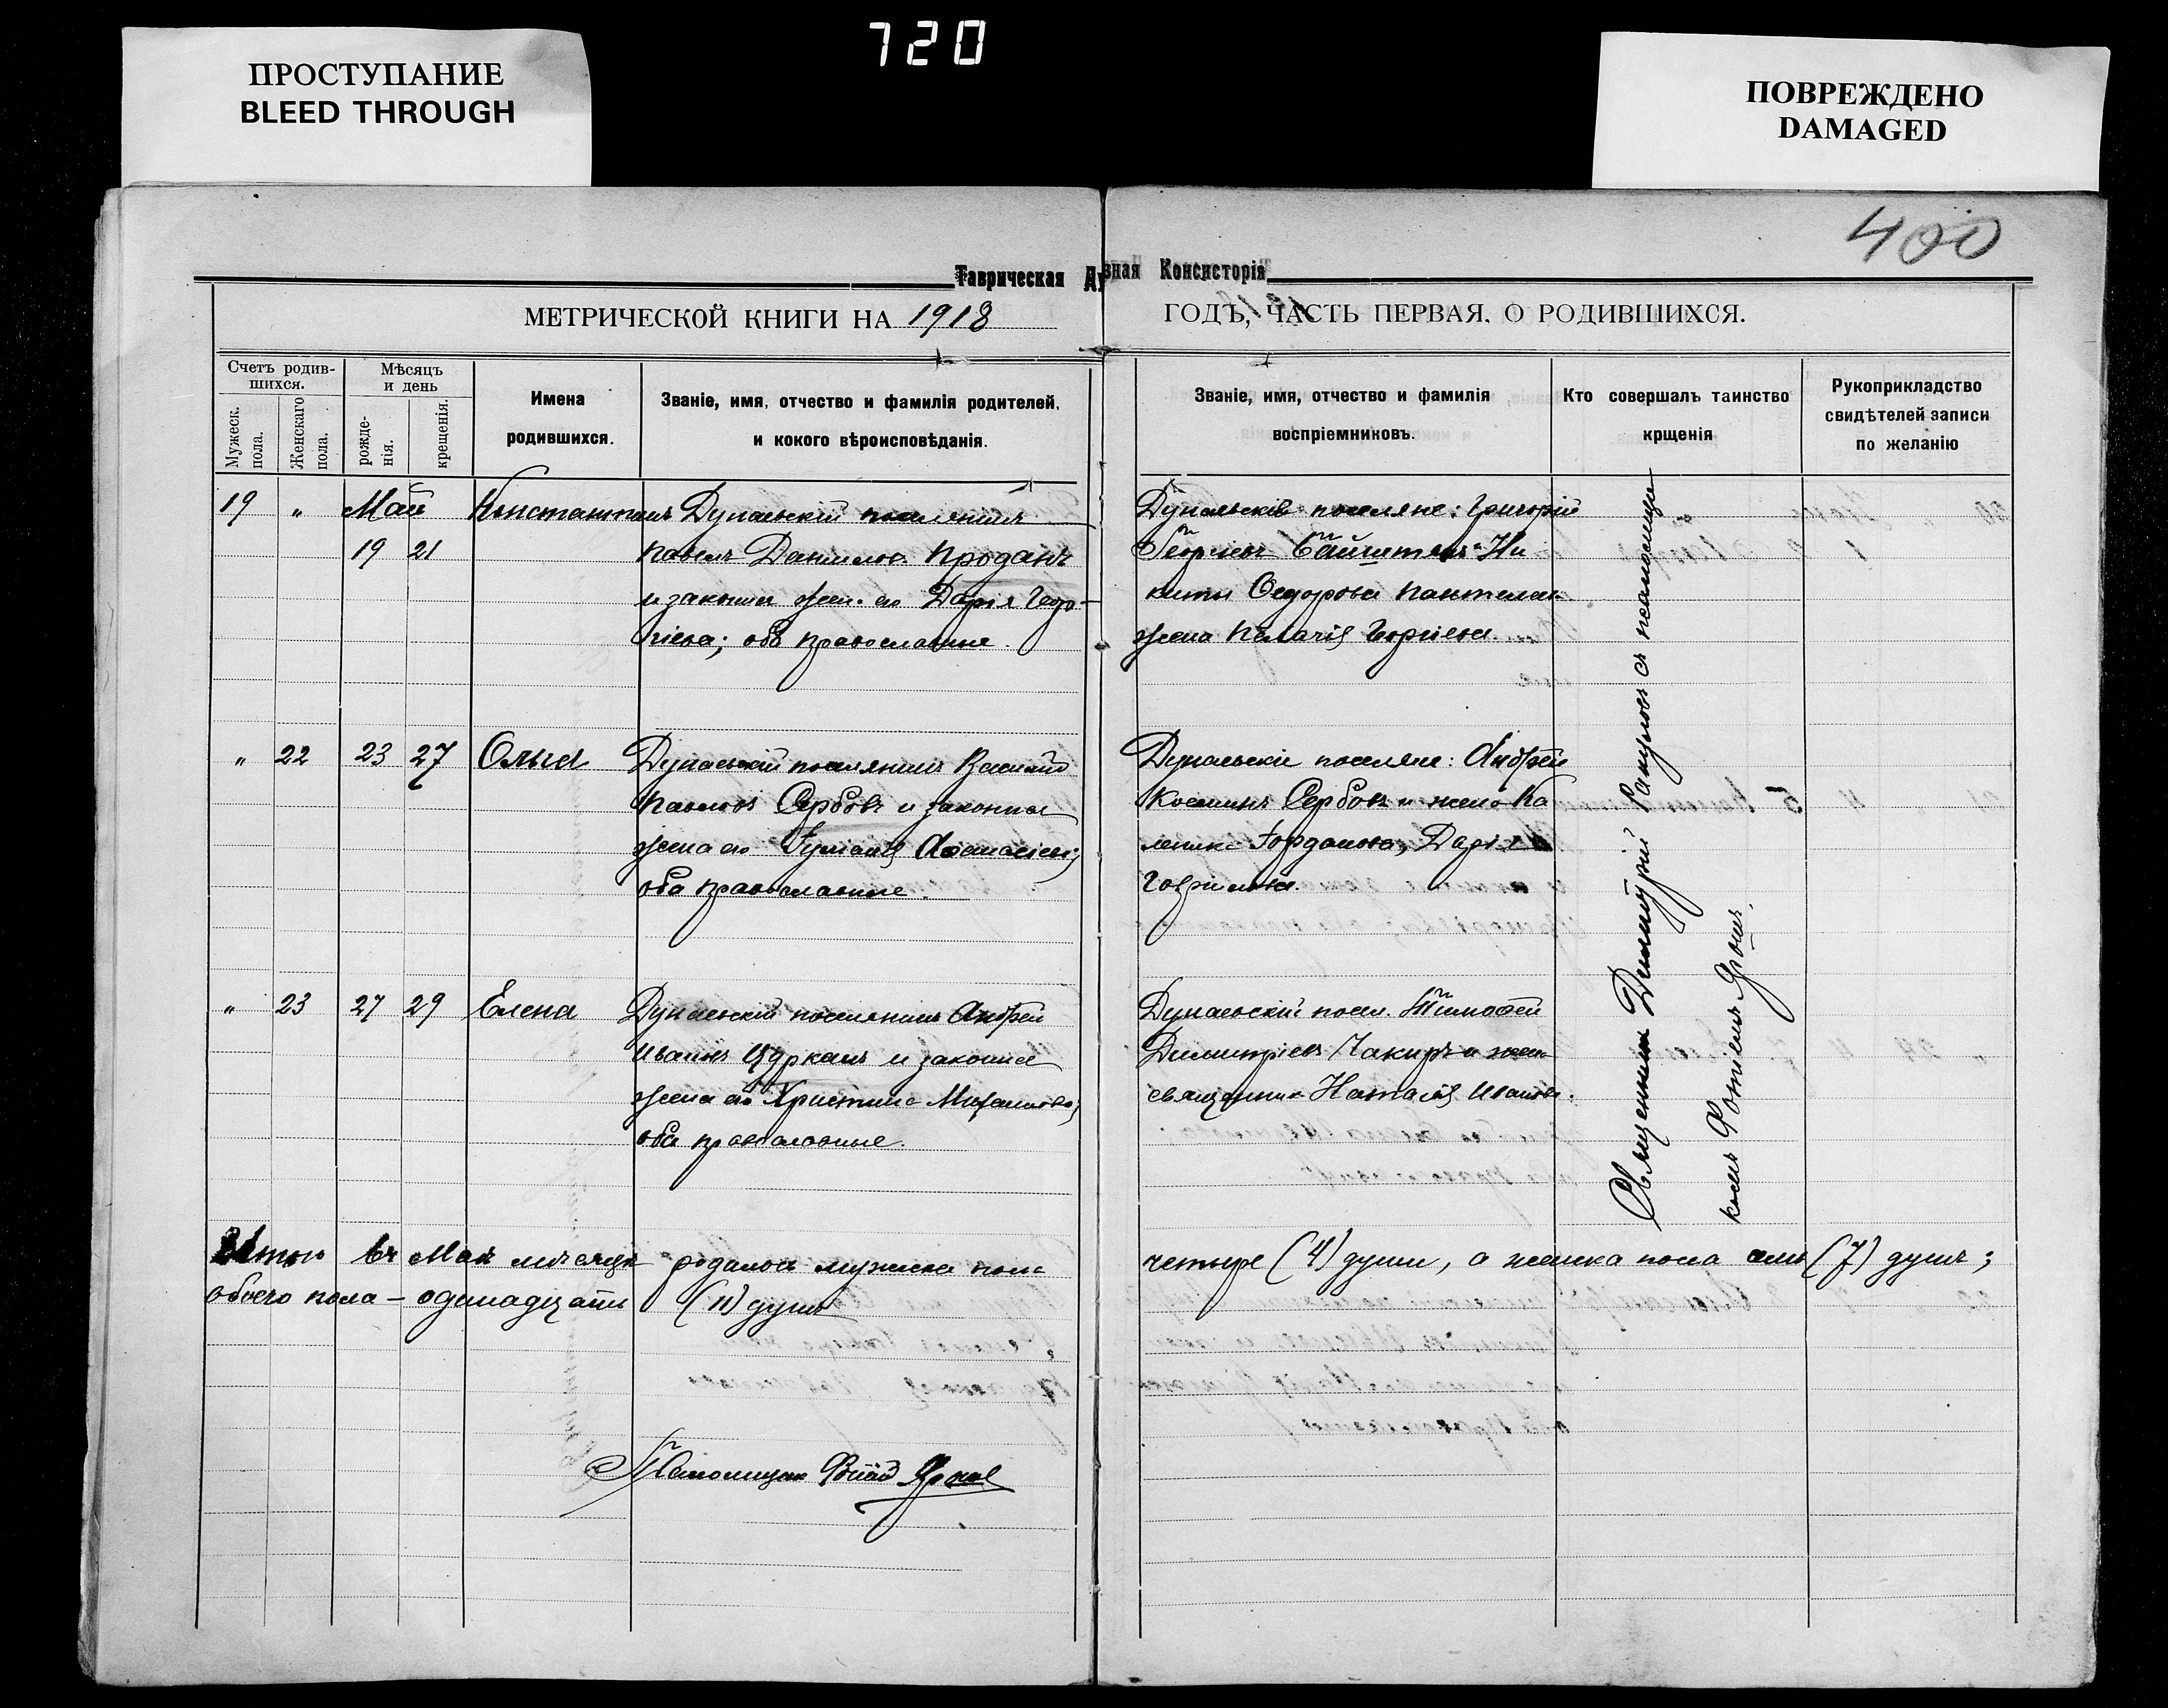 ПРОСТУПАНИЕ
BLEED THROUGH
720
ПОВРЕЖДЕНО
DAMAGED
400
Таврическая Ду вная Консисторія
МЕТРИЧЕСКОЙ КНИГИ НА 1918 ГОДЪ, ЧАСТЬ ПЕРВАЯ, О РОДИВШИХСЯ.
Счетъ родив-
шихся.
Мужеск.
пола.
Женскаго
пола.
Мѣсяцъ
и день
рожде-
нія.
крещенія.
Имена
родившихся.
Званіе, имя, отчество и фамилія родителей,
и кокого вѣроисповѣданія.
Званіе, имя, отчество и фамилія
воспріемниковъ.
Кто совершалъ таинство
крщенія
Рукоприкладство
свидѣтелей записи
по желанію
19 " Май
19 21
Константинъ
Дунаевскій поселянинъ
Павелъ Даниловъ Проданъ
и законная жен. его Дарія Геор-
гіева; оба православные.
Дунаевскіе поселяне: Григорій
Георгіевъ
Никиты Ѳедорова
жена Пелагія Георгіева.
" 22 23 27 Ольга
Дунаевскій поселянинъ Василій
Павловъ Сербовъ и законная
жена его Аѳанасіева;
оба православные.
Дунаевскіе поселяне: Андрей
Косминъ Сербовъ и жена Ка
Іорданова, Дарія
Гавриилова.
" 23 27 29 Елена
Дунаевскій поселянинъ Андрей
Ивановъ Цурканъ и законная
жена его Христина Михаилова;
оба православные.
Дунаевскій посел. Тимофей
Димитріевъ Чакиръ и жена
священника Наталія Иванова.
Священникъ Димитрій с псаломщи
комъ Фотіемъ
Итого въ Маѣ мѣсяцѣ родилось мужска пола четыре (4) души, а женска пола семь (7) душъ;
обоего пола – одинадцать (11) душъ
Псаломщикъ Фотій